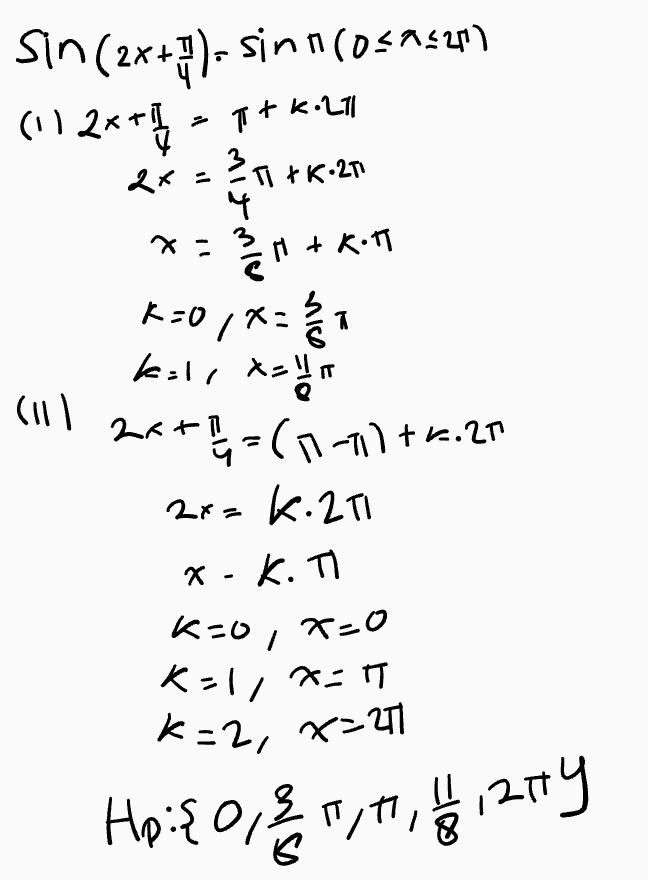 Sin(2x+π/4) = sin π (0≤x≤2π)
(i) 2x+π/4 = π + k.2π
2x = 3/4 π + k.2π
x = 3/8 π + k.π
k=0, x=3/8 π
k=1, x=11/8 π
(ii) 2x+π/4 = (π-π)+k.2π
2x = k.2π
x = k.π
k=0, x=0
k=1, x=π
k=2, x=2π
Hp:{0, 3/8 π, π, 11/8, 2π}